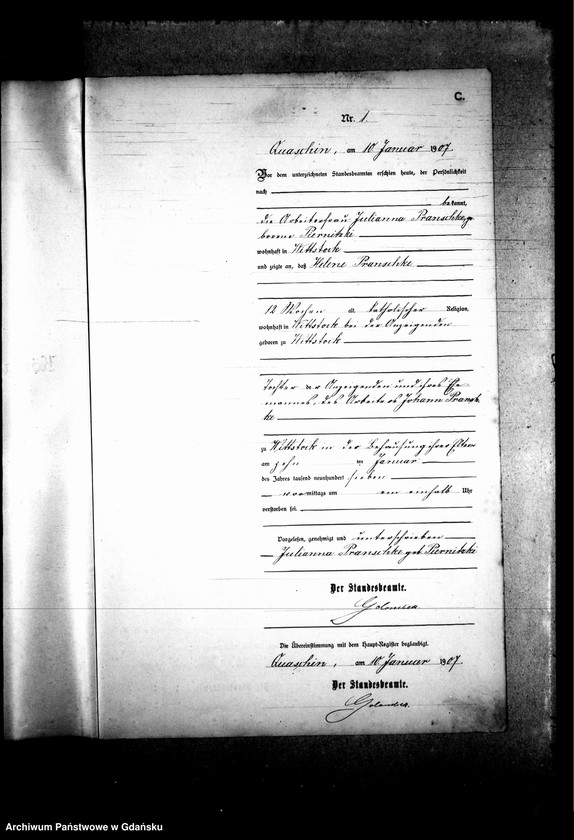 C.
Nr. 1.
Quaschin, am 10 Januar 1907.
Vor dem unterzeichneten Standesbeamten erschien heute, der Persönlichkeit
nach
bekannt,
die Arbeiterfrau Julianna Pranschke, ge
borene Piernitzki
wohnhaft in Wittstock
und zeigte an, daß Helene Pranschke
12 Wochen alt, katholischer Religion,
wohnhaft in Wittstock bei der Anzeigenden
geboren zu Wittstock
Tochter der Anzeigenden und ihres Ehe
mannes, des Arbeiters Johann Pransch
ke
zu Wittstock in der Behausung ihrer Eltern
am zehn ten Januar
des Jahres tausend neunhundert sieben
vormittags um ein einhalb Uhr
verstorben sei.
Vorgelesen, genehmigt und unterschrieben
Julianna Pranschke geb. Piernitzki
Der Standesbeamte.
Die Übereinstimmung mit dem Haupt-Register beglaubigt.
Quaschin, am 10 Januar 1907.
Der Standesbeamte.
Archiwum Państwowe w Gdańsku